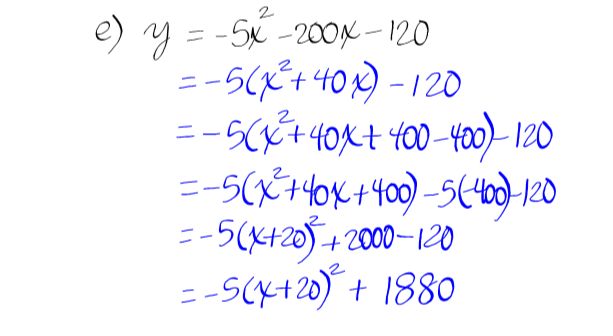 e) y = -5x² - 200x - 120
= -5(x² + 40x) - 120
= -5(x² + 40x + 400 - 400) - 120
= -5(x² + 40x + 400) - 5(-400) - 120
= -5(x+20)² + 2000 - 120
= -5(x+20)² + 1880